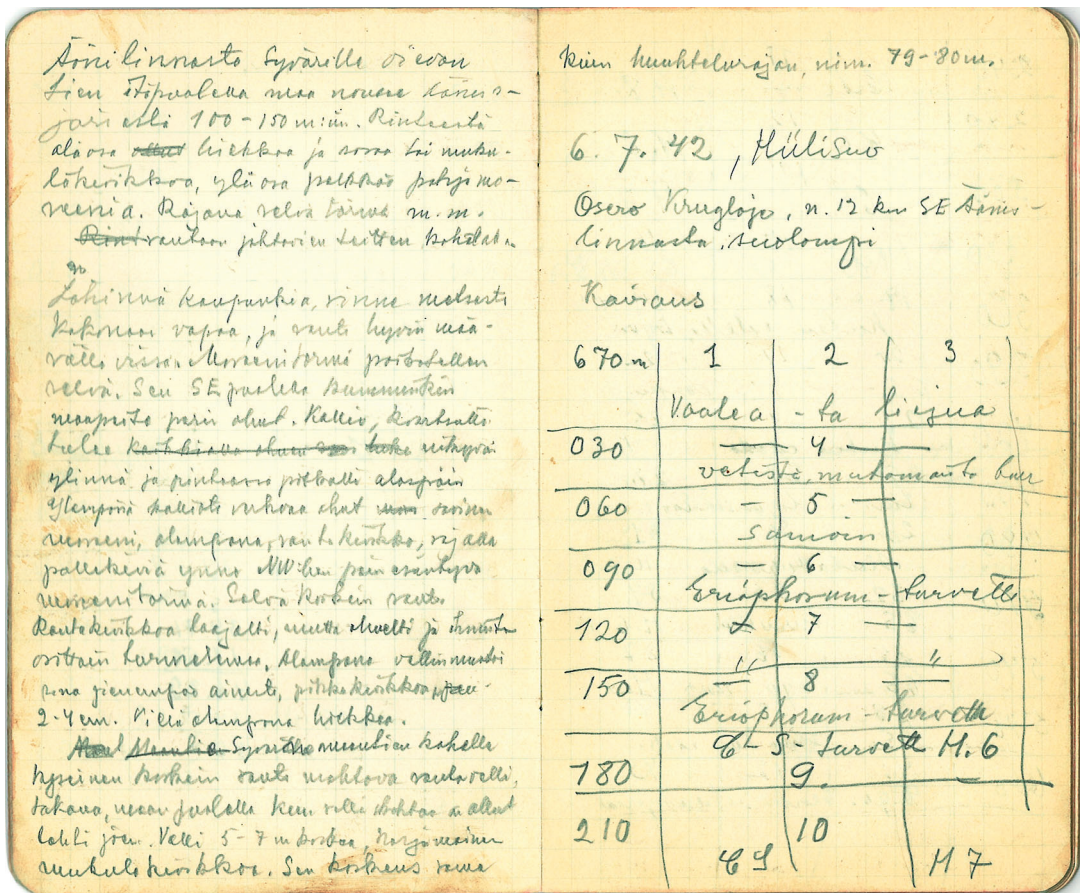 Äänislinnasta Syvärille vievän
tien itäpuolella maa nousee Äänis-
järvestä 100-150 m:iin. Rinteestä
alaosa hiekkaa ja soraa tai muku-
lakivikkoa, yläosa paikkaa pohjamo-
reenia. Rajana selvä törmä m.m.
rantaan johtavien teitten kohdal-
la.
Lähinnä kaupunkia, rinne metsästä
kokonaan vapaa, ja ranta hyvin mää-
rättävissä. Moreenitörmä paikotellen
selvä. Sen SE puolella kumminkin
maapeite ohut. Kallio, kvartsiitti
tulee näkyviin
ylinnä ja pinteessä pitkälti alaspäin
Ylempänä kalliota verhoaa ohut
moreeni, alempana rantakivikko, rajalla
pallekiviä ynnä NW:hen päin
moreenitörmä. Selvä korkein ranta
Rantakivikkoa laajalti, mutta
osittain turmeltunut. Alempana vallinmuotoi-
sena pienempää ainesta, pikkukivikkoa,
2-4 cm. Vielä alempana hiekkaa.
Syvärille maantien kohdalla
kyseinen korkein ranta mahtava rantavalli,
takana, maan puolella
lahti Valli 5-7 m korkea, harjumainen
mukulakivikkoa. Sen korkeus sama
kuin huuhtelurajan, nim. 79-80 m.
6. 7. 42, Hiilisuo
Osero Krugloje, n. 12 km SE Äänis-
linnasta, suolampi
Kairaus
670 m 1 2 3
Vaalea - ta liejua
030 — 4 —
vetistä, mutamaista
060 — 5 —
Samoin
090 — 6 —
Eriophorum - turvetta
120 — 7 —
" "
150 — 8 —
Eriophorum - turvetta
C - S - turvetta H. 6
180 9.
210 10
C S H 7